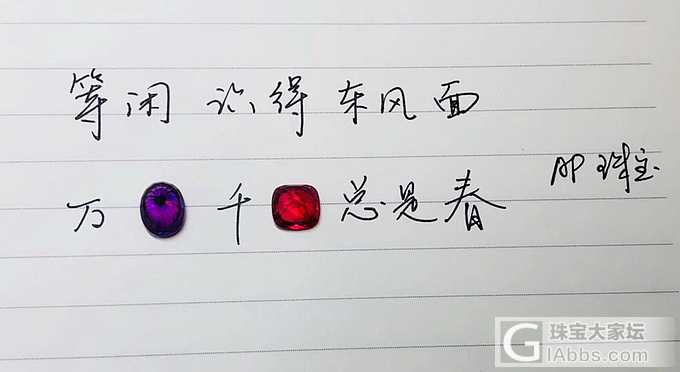 等闲识得东风面
万 千 总是春
AP 珠宝
G 珠宝大家坛
lAbbs.com